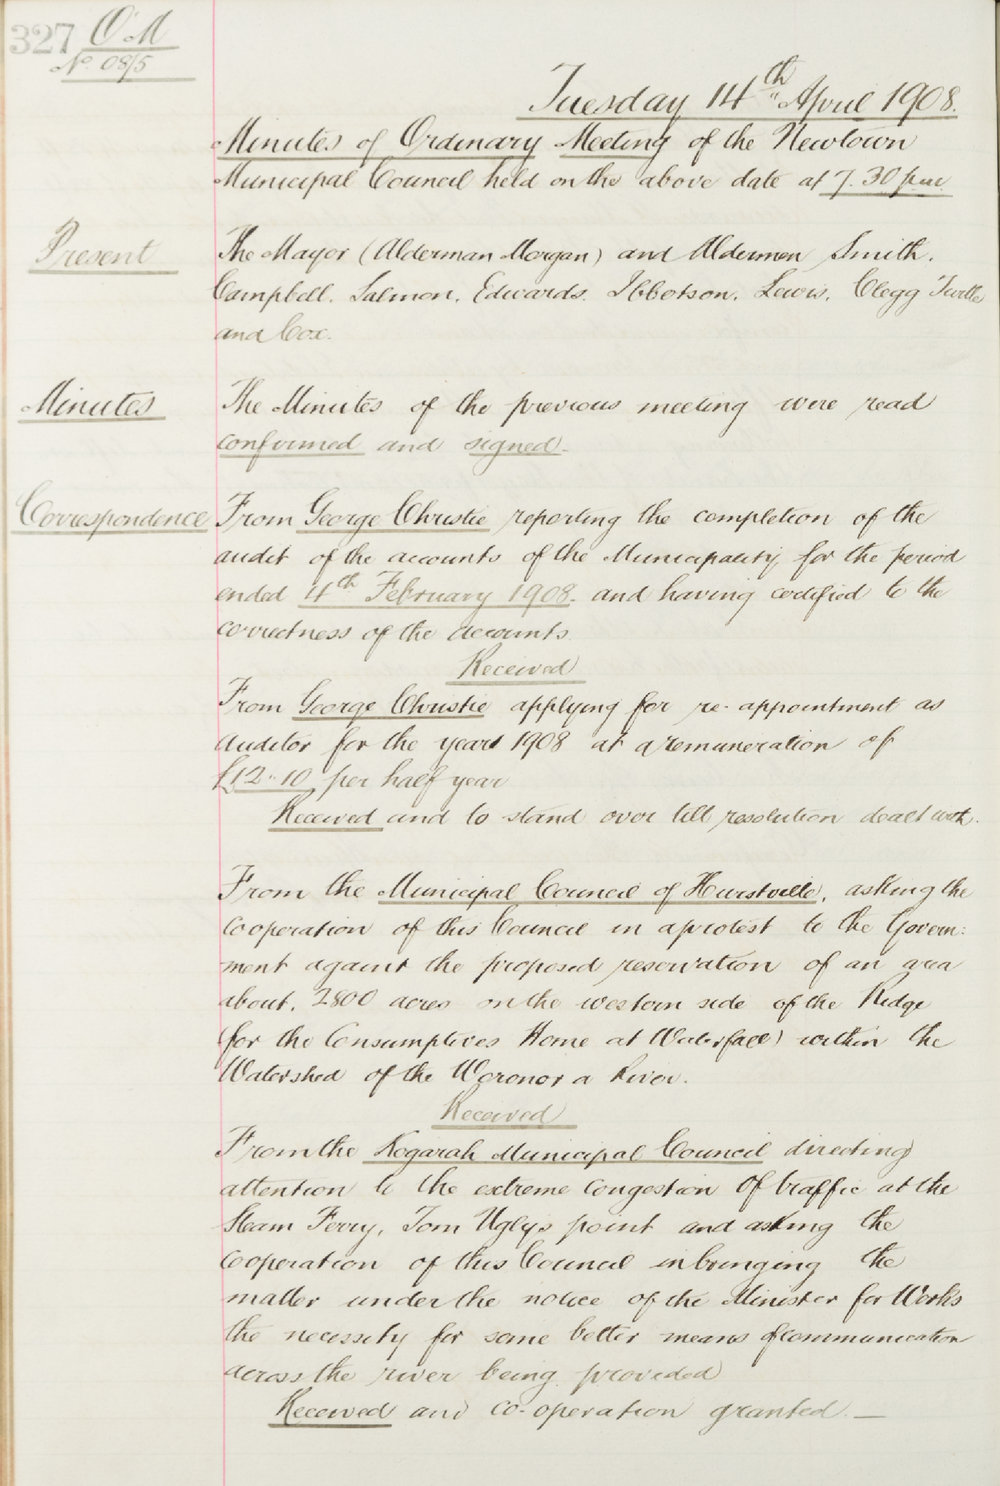 327 O M
No 08/5
Tuesday 14th April 1908.
Minutes of Ordinary Meeting of the Newtown
Municipal Council held on the above date at 7.30 pm
Present
The Mayor (Alderman Morgan) and Aldermen Smith.
Campbell. Salmon. Edwards. Ibbotson. Lewis. Clegg Turtle
and Cox.
Minutes
The Minutes of the previous meeting were read
confirmed and signed.
Correspondence
From George Christie reporting the completion of the
audit of the accounts of the Municipality for the period
ended 4th February 1908. and having certified to the
correctness of the accounts
Received
From George Christie applying for re-appointment as
Auditor for the year 1908 at a remuneration of
£12-10 per half year
Received and to stand over till resolution dealt with.
From the Municipal Council of Hurstville, asking the
Cooperation of this Council in a protest to the Govern:
ment against the proposed reservation of an area
about. 2800 acres on the western side of the Ridge
(for the Consumptives Home at Waterfall) within the
Watershed of the Woronora River.
Received
From the Kogarah Municipal Council directing
attention to the extreme congestion of traffic at the
Steam Ferry, Tom Uglys point and asking the
Cooperation of this Council in bringing the
matter under the notice of the Minister for Works
the necessity for some better means of communication
across the river being provided
Received and co-operation granted. —